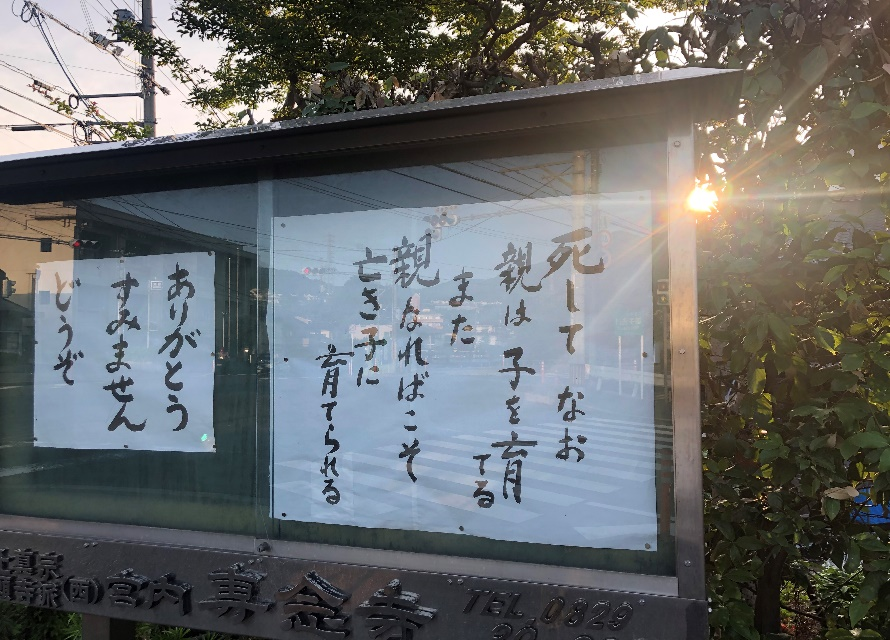 死してなお
親は子を育てる
また
親なればこそ
亡き子に
育てられる
ありがとう
すみません
どうぞ
宮内 専念寺
TEL 0829